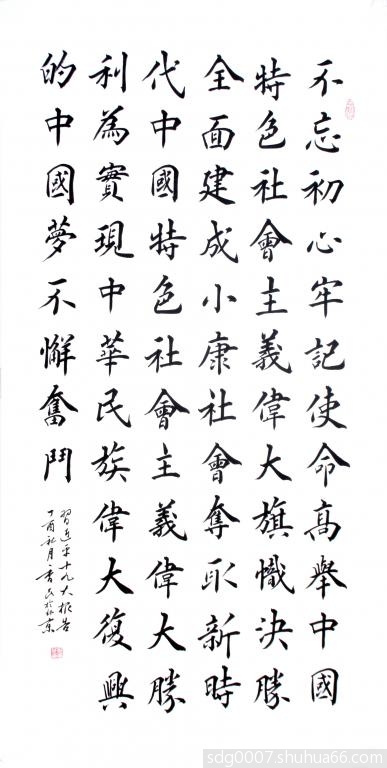 不忘初心牢記使命高舉中國
特色社會主義偉大旗幟決勝
全面建成小康社會奪取新時
代中國特色社會主義偉大勝
利為實現中華民族偉大復興
的中國夢不懈奮鬥
習近平十九大報告
丁酉秋月民於北京
sdg0007.shuhua66.com